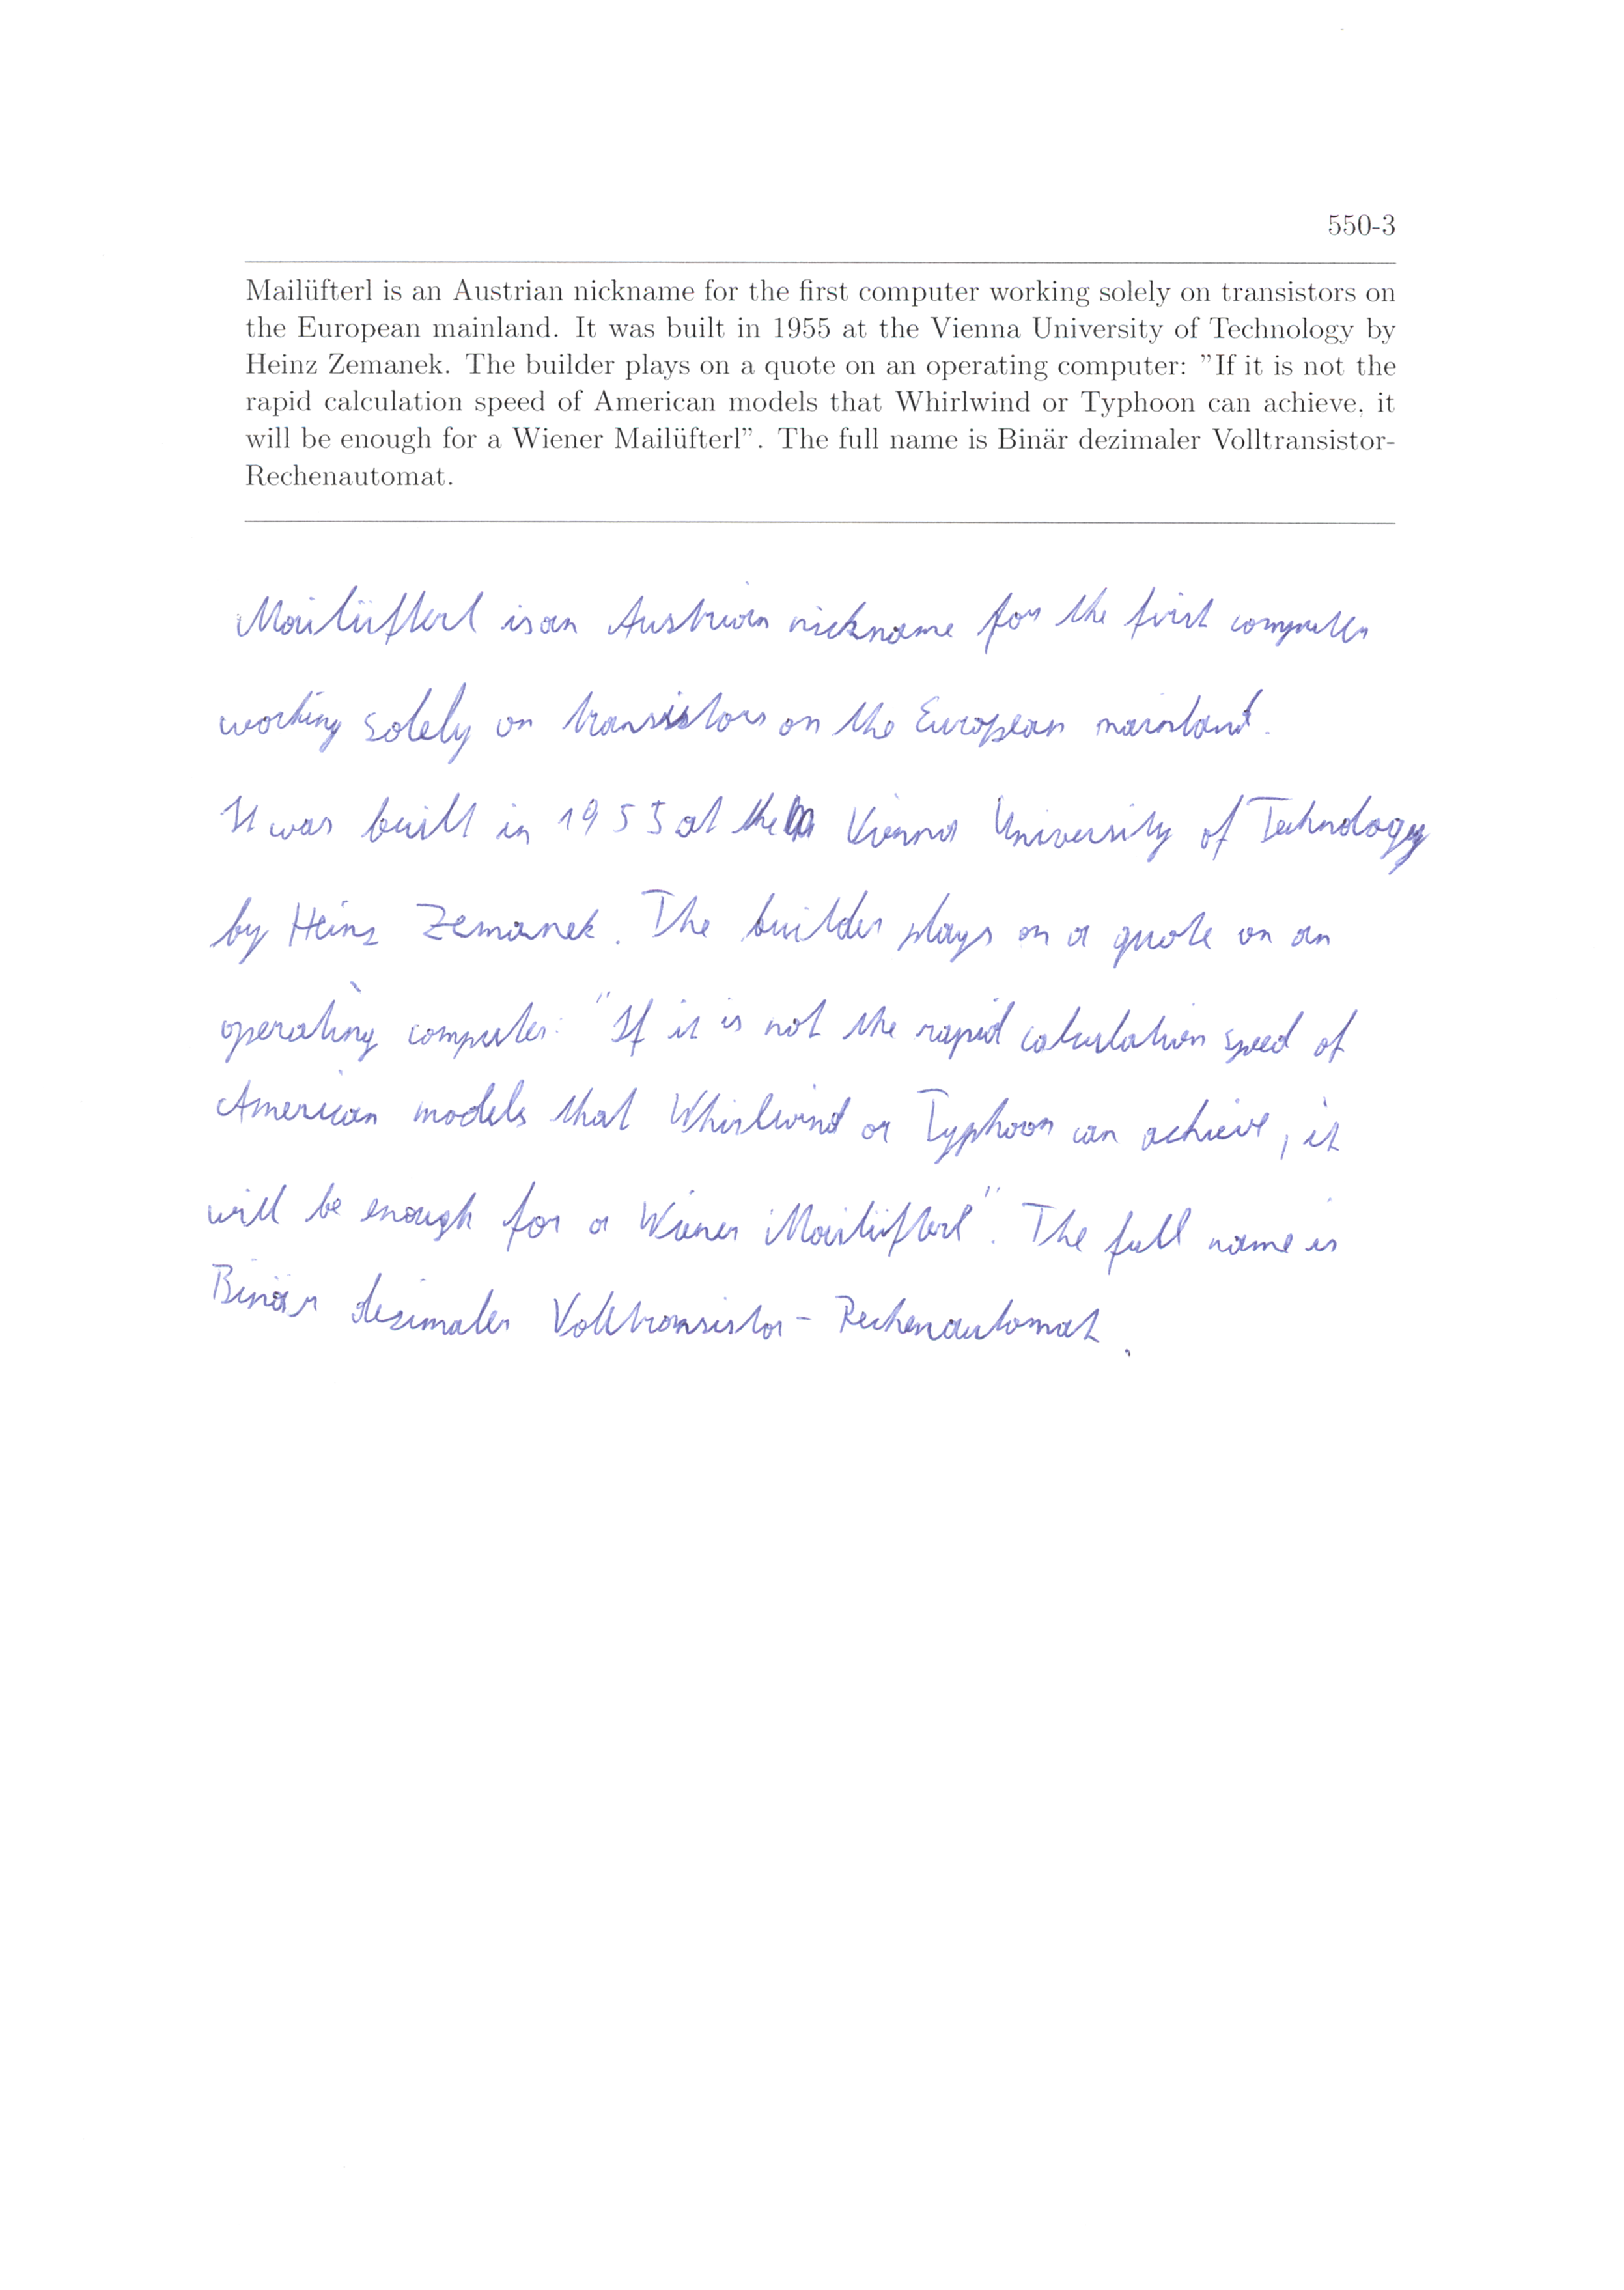 550-3
Mailüfterl is an Austrian nickname for the first computer working solely on transistors on
the European mainland. It was built in 1955 at the Vienna University of Technology by
Heinz Zemanek. The builder plays on a quote on an operating computer: ”If it is not the
rapid calculation speed of American models that Whirlwind or Typhoon can achieve, it
will be enough for a Wiener Mailüfterl”. The full name is Binär dezimaler Volltransistor-
Rechenautomat.
Mailüfterl is an Austrian nickname for the first computer
working solely on transistors on the European mainland.
It was built in 1955 at the Vienna University of Technology
by Heinz Zemanek. The builder plays on a quote on an
operating computer: "If it is not the rapid calculation speed of
American models that Whirlwind or Typhoon can achieve, it
will be enough for a Wiener Mailüfterl". The full name is
Binär dezimaler Volltransistor-Rechenautomat.